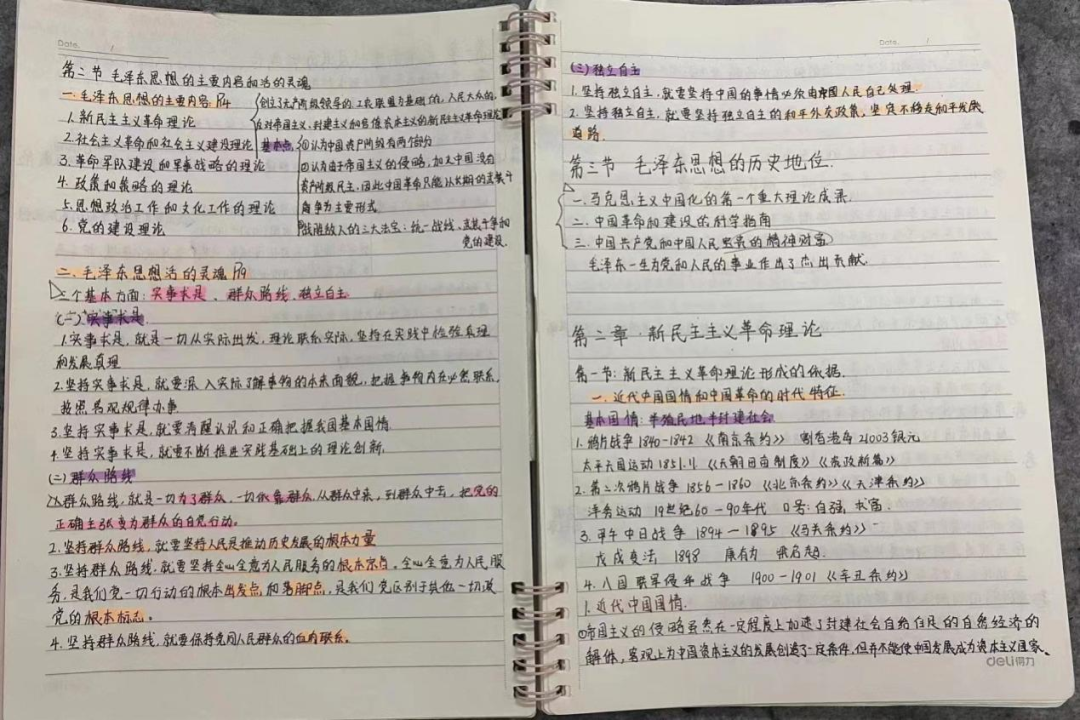 Date. /
第二节 毛泽东思想的主要内容和活的灵魂
一.毛泽东思想的主要内容 P14
1.新民主主义革命理论
2.社会主义革命和社会主义建设理论
3.革命军队建设和军事战略的理论
4.政策和策略的理论
5.思想政治工作和文化工作的理论
6.党的建设理论
创立了无产阶级领导的,工农联盟为基础的,人民大众的,
反对帝国主义,封建主义和官僚资本主义的新民主主义革命理论
基本点
①认为中国资产阶级有两个部分
②认为由于帝国主义的侵略,加之中国没有
资产阶级民主,因此中国革命只能以长期的武装斗
争为主要形式
战胜敌人的三大法宝:统一战线、武装斗争和
党的建设.
二.毛泽东思想活的灵魂 P19
三个基本方面:实事求是、群众路线、独立自主
(一)实事求是
1.实事求是,就是一切从实际出发,理论联系实际,坚持在实践中检验真理
和发展真理
2.坚持实事求是,就要深入实际了解事物的本来面貌,把握事物内在必然联系,
按照客观规律办事
3.坚持实事求是,就要清醒认识和正确把握我国基本国情
4.坚持实事求是,就要不断推进实践基础上的理论创新.
(二)群众路线
1.群众路线,就是一切为了群众,一切依靠群众,从群众中来,到群众中去,把党的
正确主张变为群众的自觉行动。
2.坚持群众路线,就要坚持人民是推动历史发展的根本力量
3.坚持群众路线,就要坚持全心全意为人民服务的根本宗旨,全心全意为人民服
务,是我们党一切行动的根本出发点和落脚点,是我们党区别于其他一切政
党的根本标志。
4.坚持群众路线,就要保持党同人民群众的血肉联系。
Date. /
(三)独立自主
1.坚持独立自主,就要坚持中国的事情必须由中国人民自己处理
2.坚持独立自主,就要坚持独立自主的和平外交政策,坚定不移走和平发展
道路.
第三节 毛泽东思想的历史地位.
一.马克思主义中国化的第一个重大理论成果.
二.中国革命和建设的科学指南
三.中国共产党和中国人民宝贵的精神财富
毛泽东一生为党和人民的事业作出了杰出贡献.
第二章 新民主主义革命理论
第一节:新民主主义革命理论形成的依据.
一.近代中国国情和中国革命的时代特征.
基本国情:半殖民地半封建社会
1.鸦片战争 1840-1842 《南京条约》 割香港岛 2100万银元
太平天国运动 1851.1 《天朝田亩制度》《资政新篇》
2.第二次鸦片战争 1856-1860 《北京条约》《天津条约》
洋务运动 19世纪60-90年代 口号:自强 求富.
3.甲午中日战争 1894-1895 《马关条约》
戊戌变法 1898 康有为 梁启超.
4.八国联军侵华战争 1900-1901 《辛丑条约》
1.近代中国国情.
①帝国主义的侵略虽然在一定程度上加速了封建社会自给自足的自然经济的
解体,客观上为中国资本主义的发展创造了一定条件,但并不能使中国发展成为资本主义国家、
deli得力